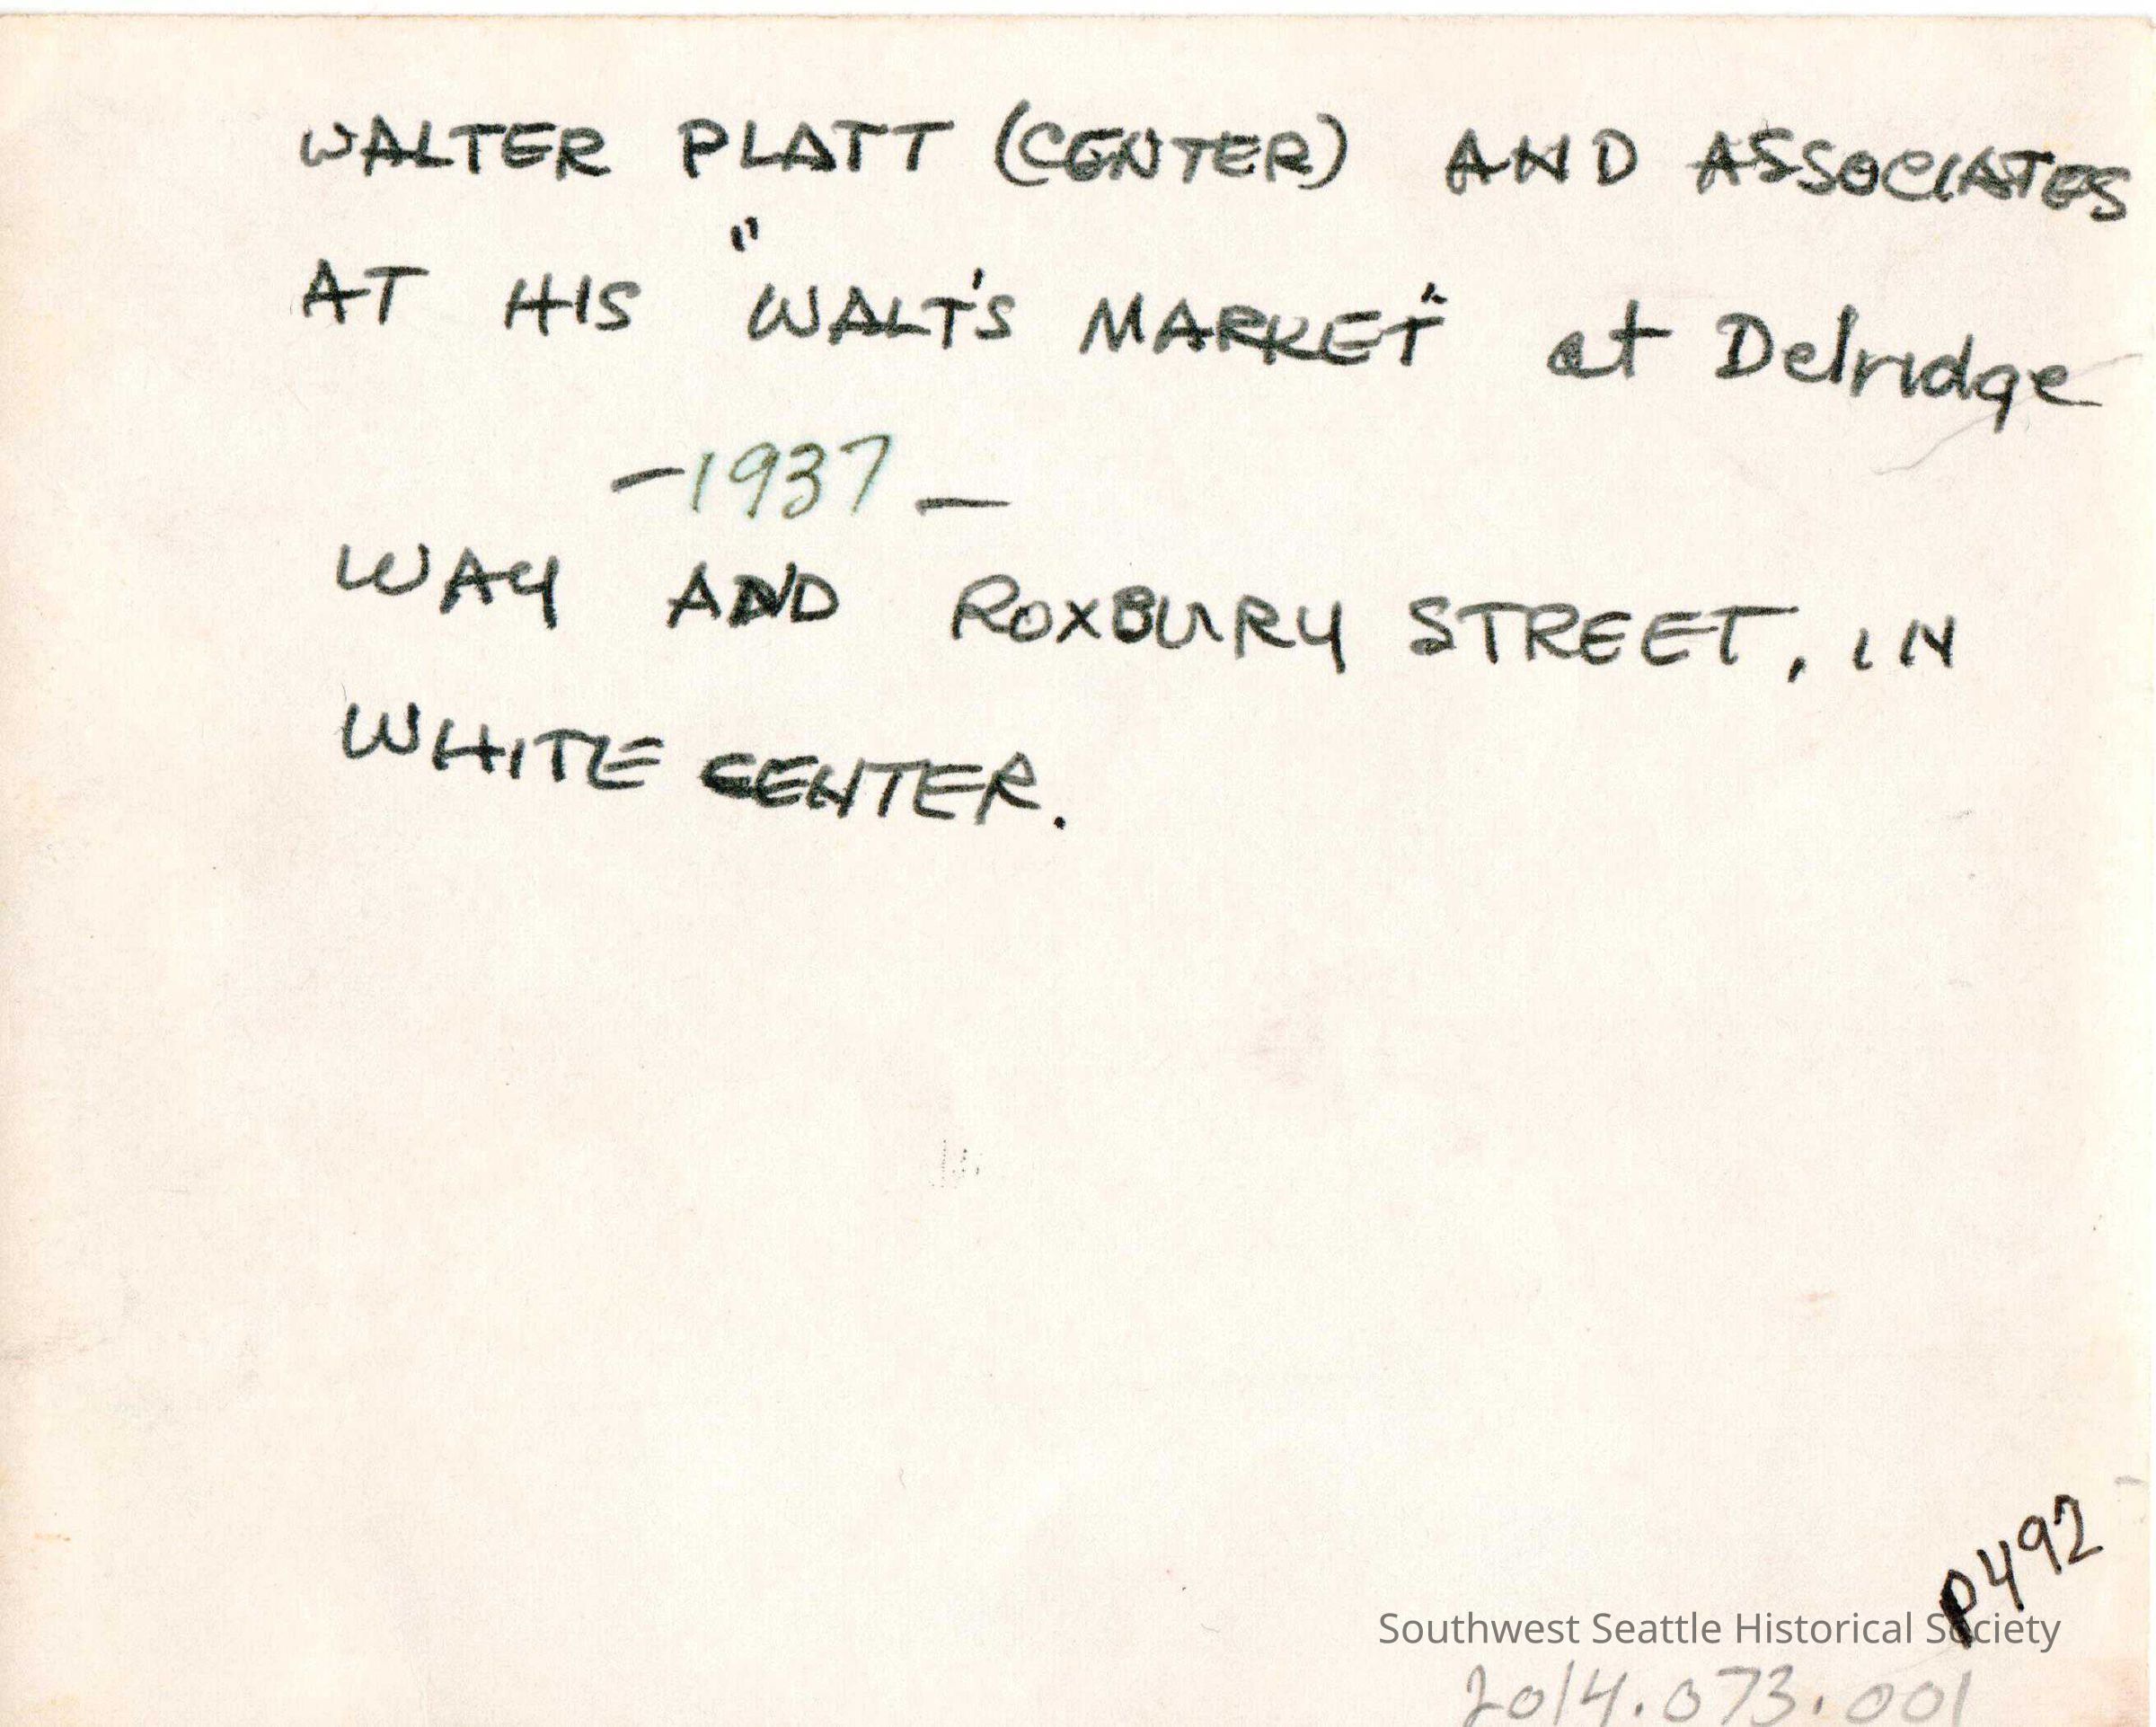 WALTER PLATT (CENTER) AND ASSOCIATES
AT HIS "WALT'S MARKET" at Delridge
—1937—
WAY AND ROXBURY STREET, IN
WHITE CENTER.
P492
Southwest Seattle Historical Society
2014.073.001